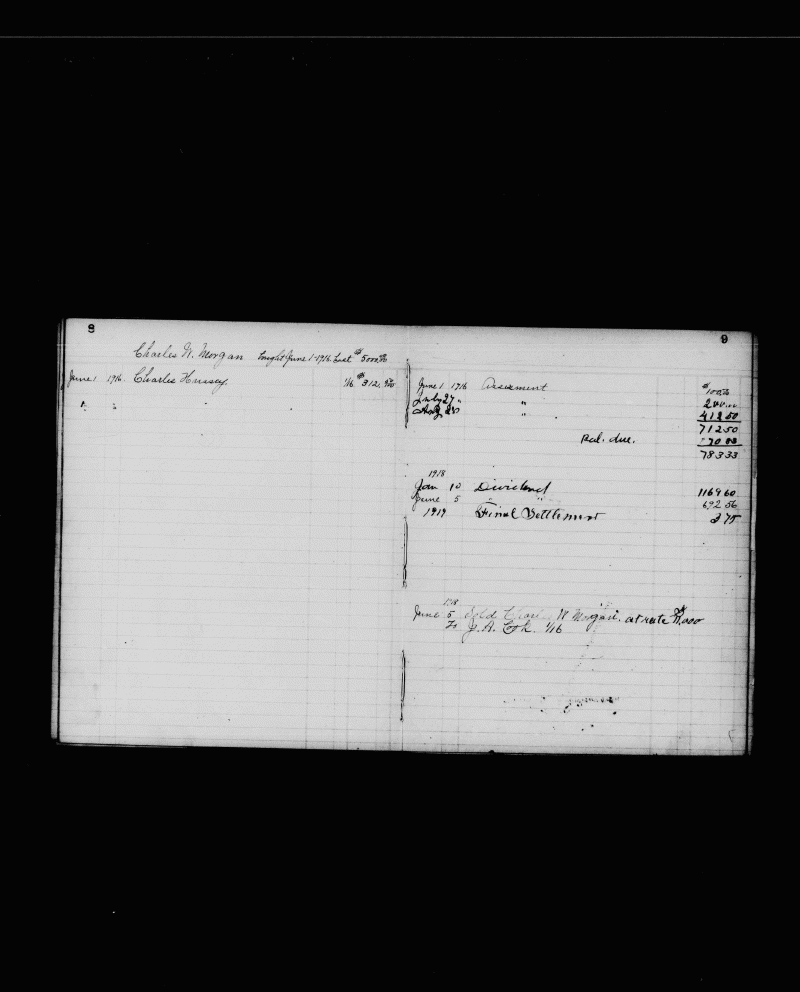 8
Charles W. Morgan bought June 1-1916 Cost $5000.00
June 1 1916. Charles Hussey 1/16 $312.50
" "
9
June 1 1916 Assessment $100.00
July 27 " " 200.00
Aug 28 " 412 50
712 50
Bal. due. 70 83
783 33
1918
Jan 10 Dividend 1169 60
June 5 " 692 56
1919 Final Settlement 3 75
1918
June 5 Sold Chas. W Morgan. at rate $7,000
To J. A. Cook 1/16